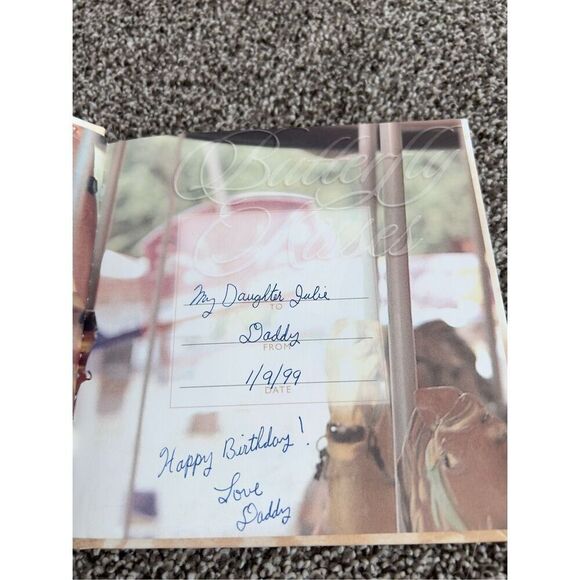 Butterfly
Kisses
My Daughter Julie
TO
Daddy
FROM
1/9/99
DATE
Happy Birthday!
Love
Daddy